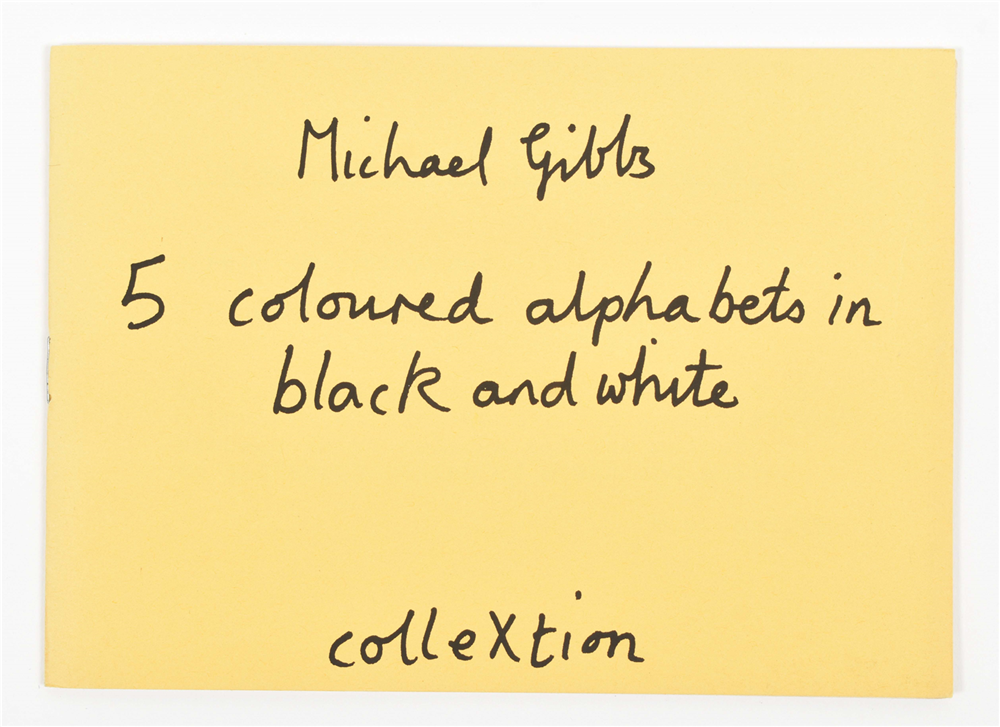 Michael Gibbs
5 coloured alphabets in
black and white
colleXtion